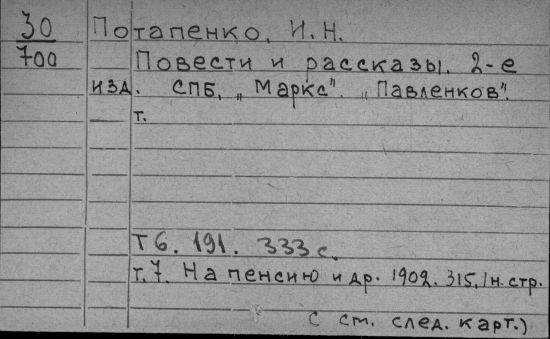 30 Потапенко, И.Н.
700 Повести и рассказы. 2-е
изд. СПБ, „Маркс". „Павленков".
т.
Т 6. 191. 333 с.
т.7. На пенсию и др. 1902. 315, 1 н. стр.
( см. след. карт.)